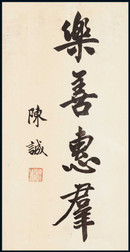 樂善惠羣
陳誠